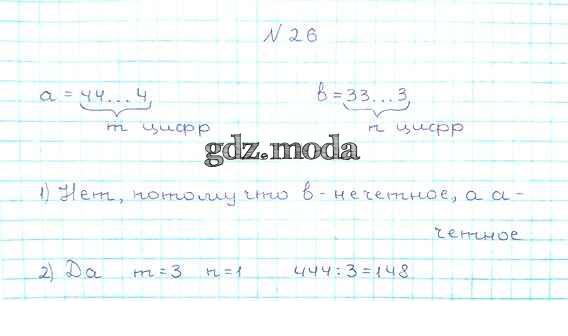 № 26
a = 44...4 в = 33...3
m цифр n цифр
gdz.moda
1) Нет, потому что в - нечетное, а а -
четное
2) Да m = 3 n = 1 444 : 3 = 148